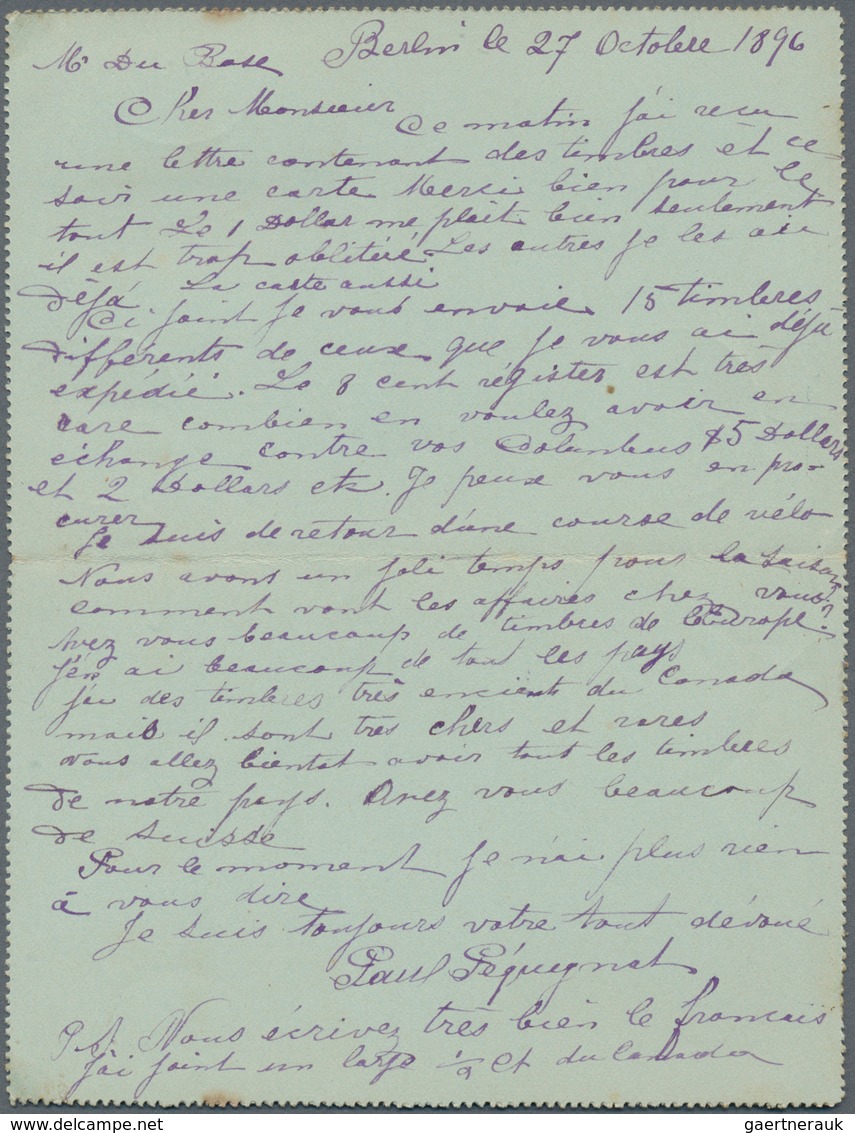 Berlin le 27 Octobre 1896
Mr Du Bose
Cher Monsieur
Ce matin j'ai recu
une lettre contenant des timbres et ce
soir une carte Merci bien pour le
tout Le 1 Dollar me plait bien seulement
il est trop oblitéré. Les autres je les ai
déjà La carte aussi
Ci joint Je vous envoie 15 timbres
différents de ceux que je vous ai déjà
expédié. Le 8 cent régister est très
rare combien en voulez avoir en
échange contre vos Columbus $5 Dollars
et 2 Dollars etc. Je peux vous en pro-
curer
Je suis de retour d'une course de vélo
Nous avons un joli temps pour la saison
comment vont les affaires chez vous?
Avez vous beaucoup de timbres de l'Europe?
J'en ai beaucoup de tout les pays
j'ai des timbres très encient du Canada
mais il sont très chers et rares
vous allez bientot avoir tout les timbres
de notre pays. Avez vous beaucoup
de suisse
Pour le moment je n'ai plus rien
à vous dire
Je suis toujours votre tout dévoué
Paul Péquegnat
P.S. Vous écrivez très bien le francais
J'ai joint un large ½ ct du Canada
gaertnerauk